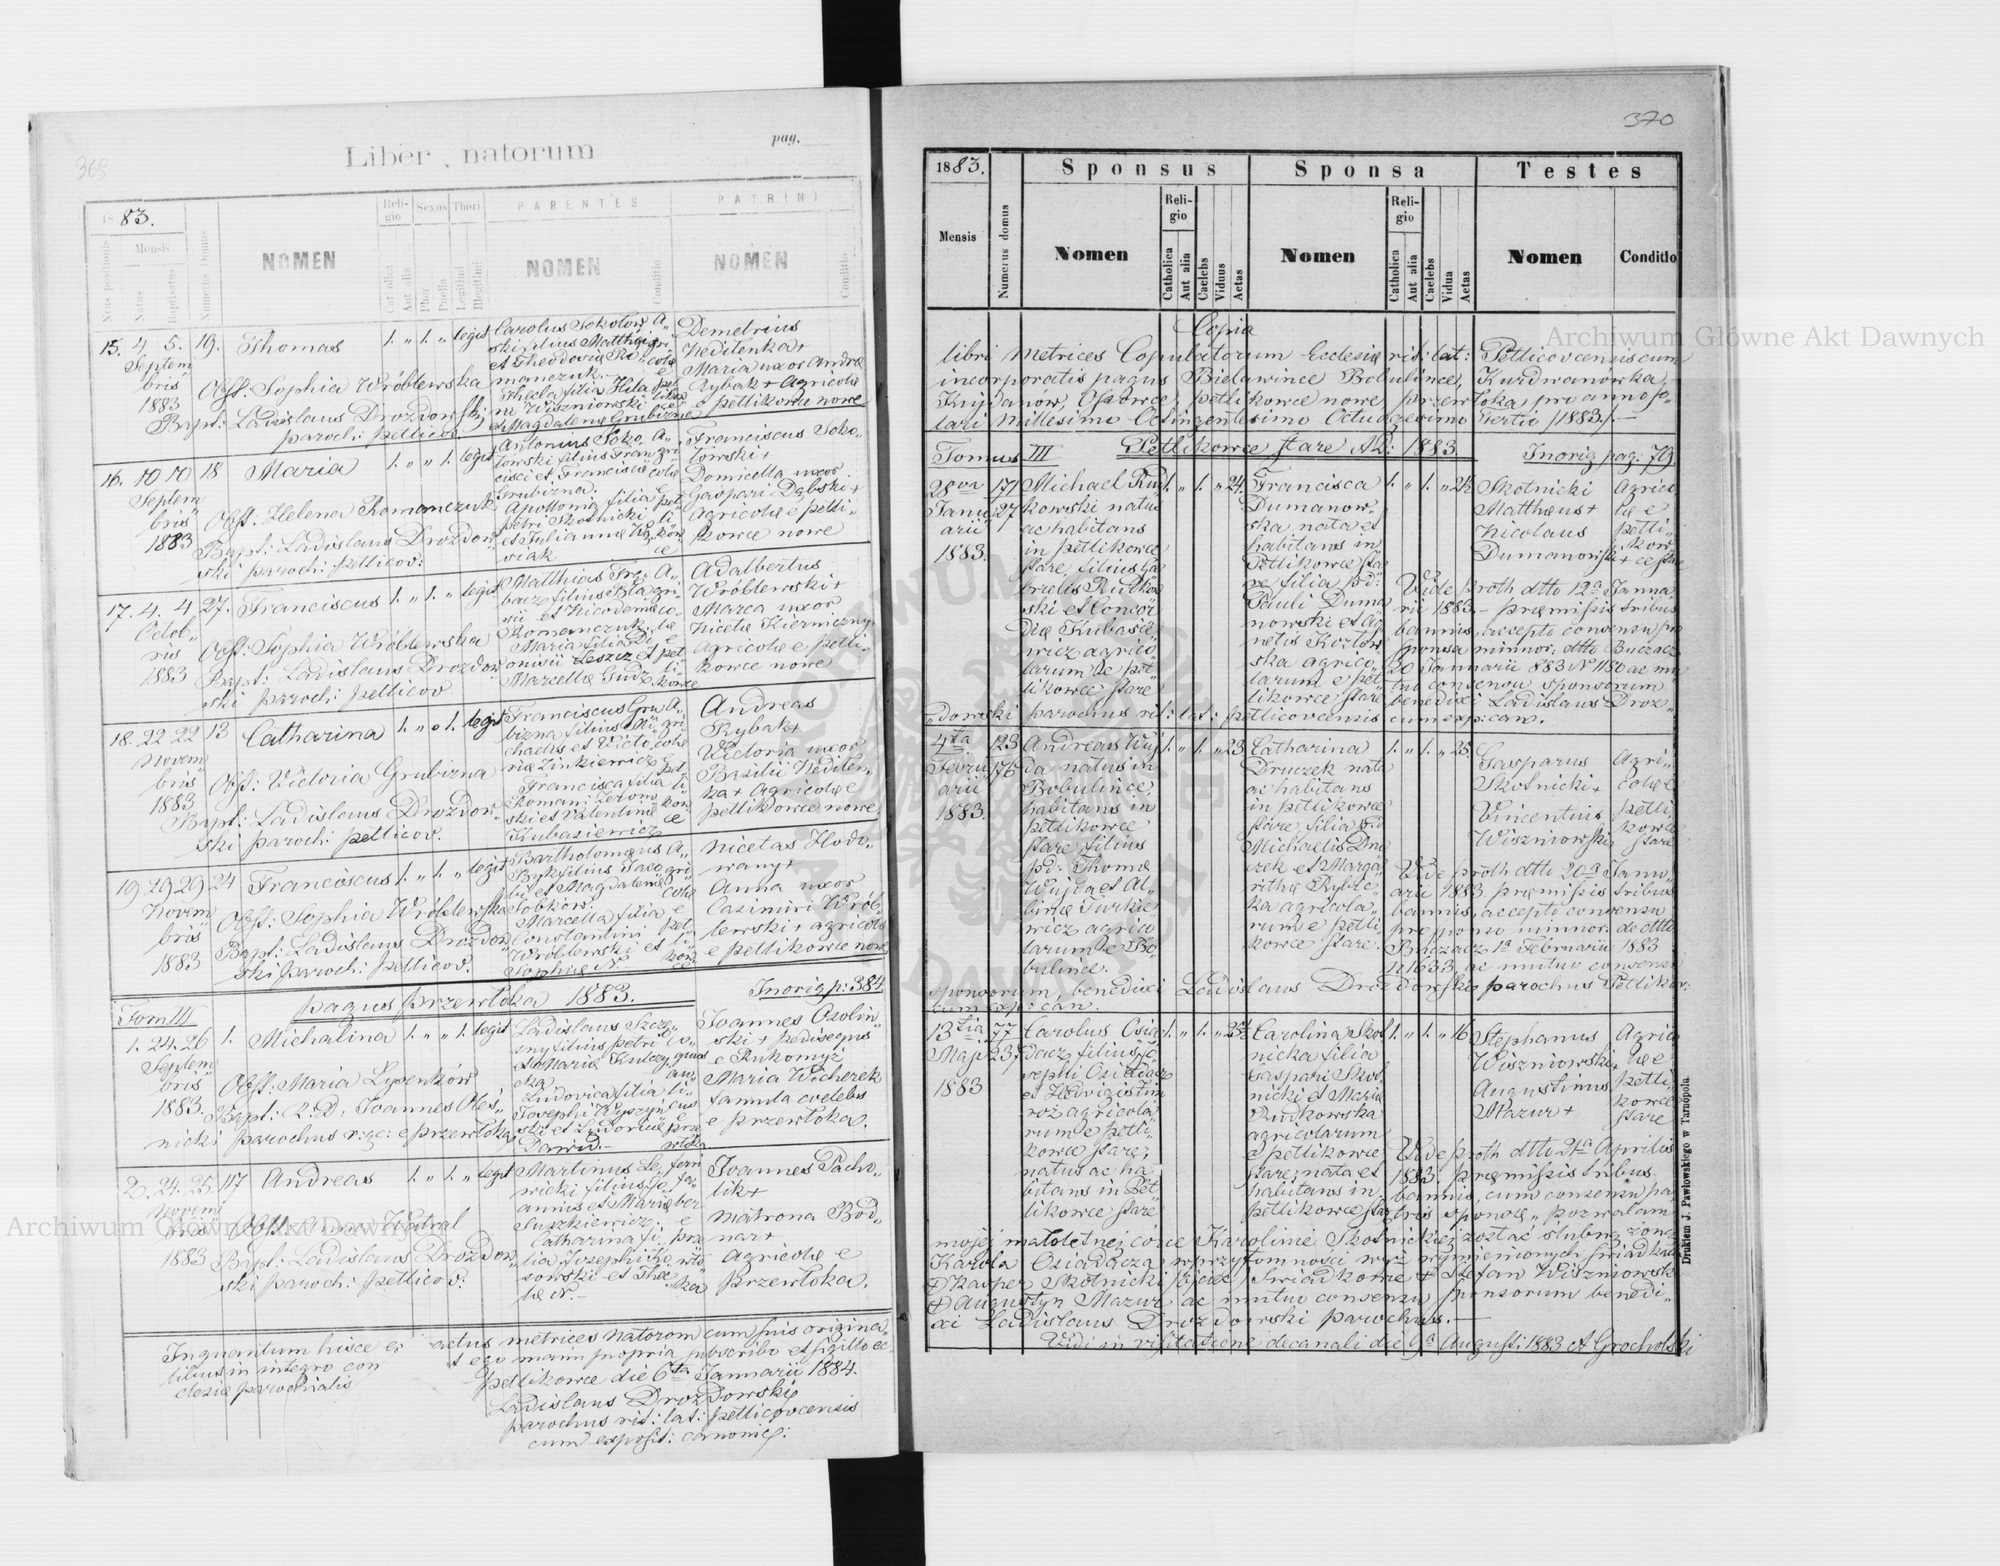 369
Liber natorum
pag.
1883.
Nrus positionis
Mensis
Natus
Baptisatus
Numerus Domus
NOMEN
Religio
Catolica
Aut alia
Sexus
Puer
Puella
Thori
Legitimi
Illegitimi
PARENTES
NOMEN
Conditio
PATRINI
NOMEN
Conditio
15. 4 5. 19. Thomas 1. " 1. " legit
Septem
bris
1883
Obst. Sophia Wróblewska
Bapt: Ladislaus Drozdowski
paroch: petlicov.
Carolus Sokołow
ski filius Matthiæ
et Theodoria Ro
manczuk.
Thecla filia Hila
ri Wiszniowski
et Magdalenæ Grubizna
Demetrius
Neditenka +
Maria uxor Andræ
Rybak + Agricolæ
e petlikowce nowe
16. 10 10 18 Maria 1. " " 1. legit
Septem
bris
1883
Obst: Helena Romanczuk
Bapt: Ladislaus Drozdow
ski paroch: petlicov:
Antonius Soko
łowski filius Fran
cisci et Franciscæ
Grubizna.
Apollonia filia
petri Skotnicki
et Juliannæ
wiak
Franciscus Soko„
łowski +
Domicella uxor
Gaspari Dąbski +
Agricolæ e petli„
kowce nowe
17. 4. 4 27. Franciscus 1. " 1. " legit
Octob„
ris
1883
Obst: Sophia Wróblewska
Bapt: Ladislaus Drozdow
ski paroch: petlicov
Matthias
bacz filius
et Nicodemæ
Romanczuk.
Maria filia Di
onisii Leszcz et
Marcellæ Gudz
Adalbertus
Wróblewski +
Marca uxor
Nicetæ Kierniczny
Agricolæ e petli„
kowce nowe
18. 22 22 13 Catharina 1. " " 1. legit
Novem
bris
1883
Obst: Victoria Grubizna
Bapt: Ladislaus Drozdow„
ski paroch: petlicov.
Franciscus Gru
bizna filius Mi
chaelis et Victo
riæ Zinkiewicz
Francisca filia
Romani
ski et Valentinæ
Kubasiewicz
Andreas
Rybak +
Victoria uxor
Basilii Nediten„
ka + Agricolæ e
petlikowce nowe
19. 29 29 24 Franciscus 1. " 1. " legit
Novem
bris
1883
Obst: Sophia Wróblewska
Bapt: Ladislaus Drozdow
ski paroch: petlicov.
Bartholomæus
Byk filius Jaco
bi et Magdalenæ
Sobków.
Marcella filia
Constantini
Wróblewski et
Sophiæ N.
Nicetas Hodo„
wany +
Anna uxor
Casimiri Wrób„
lewski + agricolæ
e petlikowce nowe
Tom III pagus przewłoka 1883. In orig p: 384
1. 24. 26 1. Michalina 1. " " 1. legit
Septem
bris
1883.
Obst: Maria Lysenków
Bapt: R: D: Joannes Oleś„
nicki parochus r: gc: e przewłoka
Ladislaus Szcze„
sny filius petri
et Maria Kulczy
cka
Ludovica filia
Josephi
ski et Ladoriæ
Danid.
Joannes Ozolin
ski + pedisequs
e Rukomyz
Maria Wicherek
famula coelebs
e przewłoka.
2. 24. 25. 117 Andreas 1. " 1. " legit
Novem
bris
1883
Obst: Anna Watral
Bapt: Ladislaus Drozdow„
ski paroch: petlicov.
Martinus Le
wicki filius Jo
annis et Mariæ
Suszkiewicz.
Catharina fi
lia Josephi
sowski et Thec
læ N.
Joannes Pacho„
lik +
Matrona Bod„
nar +
Agricolæ e
przewłoka.
Inquantum hisce ex actus metrices Natorom cum suis origina„
libus in integro con
clesiæ parochialis
t ego manu propria subscribo et sigillo ec
petlikowce die 6ta Januarii 1884.
Ladislaus Drozdowski
parochus rit: lat: petlicovcensis
cum exposit: canonic:
370
1883.
Mensis
Numerus domus
Sponsus
Nomen
Religio
Catholica
Aut alia
Caelebs
Viduus
Aetas
Sponsa
Nomen
Religio
Catholica
Aut alia
Caelebs
Vidua
Aetas
Testes
Nomen
Conditio
Copia
libri Metrices Copulatorum Ecclesiæ rit: lat: Petlicovcensis cum
incorporatis pagus Bielawince Bobulince, Kurdwanówka,
Kujdanów, Osowce, petlikowce nowe przewłoka, pro anno so„
lari Millesimo Octingentesimo Octuagesimo Tertio /1883/.—
Tomus III Petlikowce stare AD: 1883. In orig pag: 79.
28va
Janu
arii
1883.
171
27
Michael Rud
kowski natus
ac habitans
in petlikowce
stare, filius Ga
brielis Rudkow
ski et Concor
diæ Kubasie„
wicz agrico„
larum de pet
likowce stare
1. " 1. " 24.
Francisca
Dumanow„
ska nata et
habitans in
Petlikowce sta
re, filia pd:
Pauli Duma
nowski et Ag„
netis Kozłow
ska agrico„
larum e pet
likowce stare
1. " 1. " 21½
Skotnicki
Matthæus +
Nicolaus
Dumanowski +
Agrico
læ e
petli„
kow
ce stare
Vide proth dtto 12a Janua
rii 1883.— præmissis tribus
bannis, accepto consensu pro
sponsa minnor: dtto Buczacz
20 Januarii 883 No 1180 ac mu
tuo consensu sponsorum
benedixi Ladislaus Droz„
„dowski parochus rit: lat: petlicovcensis cum exp: can.
4ta
Febru
arii
1883.
123
176
Andreas Wuj
da natus in
Bobulince,
habitans in
petlikowce
stare filius
pd: Thomæ
Wujda et Al„
binæ Turkie„
wicz agrico
larum e Bo„
bulince.
1. " 1. " 23
Catharina
Druczek nata
ac habitans
in petlikowce
stare, filia pd
Michaelis Dru
czek et Marga
rithæ Rybic„
ka agricola„
rum e petli
kowce stare.
1. " 1. " 25.
Gasparus
Skotnicki +
Vincentius
Wiszniowski
Agri„
colæ e
petli„
kowce
stare
Vide proth dtto 20a Janu„
arii 1883. præmissis tribus
bannis, accepto consensu
pro sponso minnor: de dtto
Buczacz 1a Februarii 1883
N 1633 ac mutuo consensu
sponsorum, benedixi Ladislaus Drozdowski parochus Petlikow:
cum exp: can.
13tia
Maji
1883
77
23
Carolus Osia
dacz filius Jo„
sephi Osiadacz
et Hedvigis Tim
roz agricola
rum e petli„
kowce stare;
natus ac ha
bitans in Pet„
likowce stare
1. " 1. " 25½
Carolina Skot
nicka filia
Gaspari Skot
nicki et Mariæ
Rudkowska
agricolarum
e petlikowce
stare; nata et
habitans in
petlikowce stare
1. " 1. " 16
Stephanus
Wiszniowski +
Augustinus
Mazur +
Agrico
læ e
petli„
kowce
stare
Vide proth dtto 21a Aprilis
1883. præmissis tribus
bannis, cum consensu pa„
tris sponsæ „pozwalam
mojej małoletniej córce Karolinie Skotnickiej zostać ślubną żoną
Karola Osiadacza w przytomności wyż wymienionych świadków
+ Kasper Skotnicki /ojciec/ Świadkowie + Stefan Wiszniowski
+ Augustyn Mazur ac mutuo consensu sponsorum benedi„
xi Ladislaus Drozdowski parochus.—
Vidi in visitatione decanali die 9a Augusti 1883 A Grocholski
Drukiem J. Pawłowskiego w Tarnopolu
Archiwum Główne Akt Dawnych
Archiwum Główne Akt Dawnych